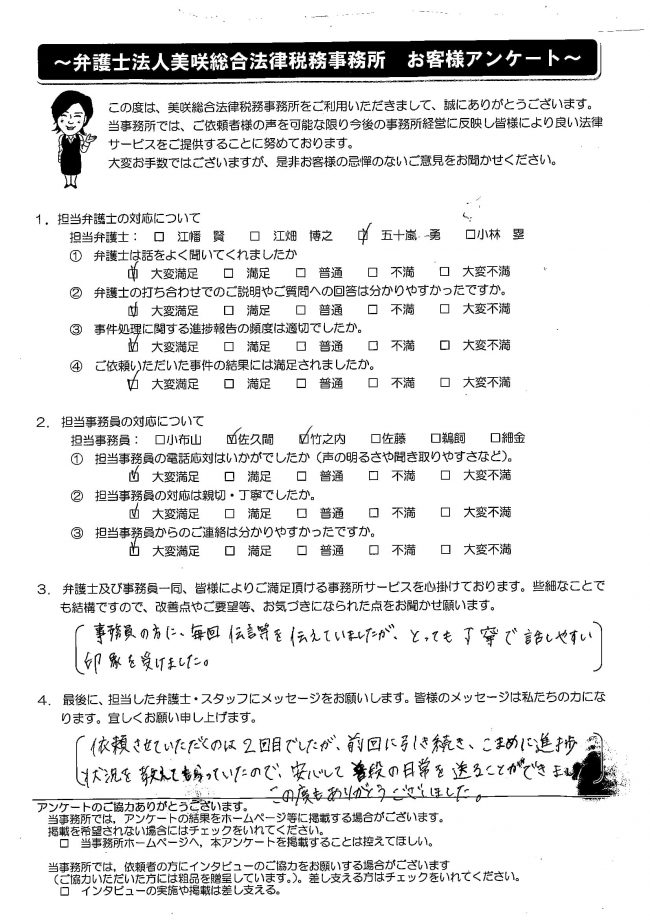 ～弁護士法人美咲総合法律税務事務所　お客様アンケート～
この度は、美咲総合法律税務事務所をご利用いただきまして、誠にありがとうございます。
当事務所では、ご依頼者様の声を可能な限り今後の事務所経営に反映し皆様により良い法律
サービスをご提供することに努めております。
大変お手数ではございますが、是非お客様の忌憚のないご意見をお聞かせください。
１．担当弁護士の対応について
担当弁護士： □ 江幡 賢 □ 江畑 博之 ☑ 五十嵐 勇 □小林 塁
① 弁護士は話をよく聞いてくれましたか
☑ 大変満足 □ 満足 □ 普通 □ 不満 □ 大変不満
② 弁護士の打ち合わせでのご説明やご質問への回答は分かりやすかったですか。
☑ 大変満足 □ 満足 □ 普通 □ 不満 □ 大変不満
③ 事件処理に関する進捗報告の頻度は適切でしたか。
☑ 大変満足 □ 満足 □ 普通 □ 不満 □ 大変不満
④ ご依頼いただいた事件の結果には満足されましたか。
☑ 大変満足 □ 満足 □ 普通 □ 不満 □ 大変不満
２．担当事務員の対応について
担当事務員： □小布山 ☑佐久間 ☑竹之内 □佐藤 □鵜飼 □細金
① 担当事務員の電話応対はいかがでしたか（声の明るさや聞き取りやすさなど）。
☑ 大変満足 □ 満足 □ 普通 □ 不満 □ 大変不満
② 担当事務員の対応は親切・丁寧でしたか。
☑ 大変満足 □ 満足 □ 普通 □ 不満 □ 大変不満
③ 担当事務員からのご連絡は分かりやすかったですか。
☑ 大変満足 □ 満足 □ 普通 □ 不満 □ 大変不満
３．弁護士及び事務員一同、皆様によりご満足頂ける事務所サービスを心掛けております。些細なことで
も結構ですので、改善点やご要望等、お気づきになられた点をお聞かせ願います。
事務員の方に、毎回伝言等を伝えていましたが、とっても丁寧で話しやすい
印象を受けました。
４．最後に、担当した弁護士・スタッフにメッセージをお願いします。皆様のメッセージは私たちの力にな
ります。宜しくお願い申し上げます。
依頼させていただくのは2回目でしたが、前回に引き続き、こまめに進捗
状況を教えてもらっていたので、安心して普段の日常を送ることができまし
この度もありがとうございました。
アンケートのご協力ありがとうございます。
当事務所では、アンケートの結果をホームページ等に掲載する場合がございます。
掲載を希望されない場合にはチェックをいれてください。
□ 当事務所ホームページへ、本アンケートを掲載することは控えてほしい。
当事務所では、依頼者の方にインタビューのご協力をお願いする場合がございます
（ご協力いただいた方には粗品を贈呈しています。）。差し支える方はチェックをいれてください。
□ インタビューの実施や掲載は差し支える。